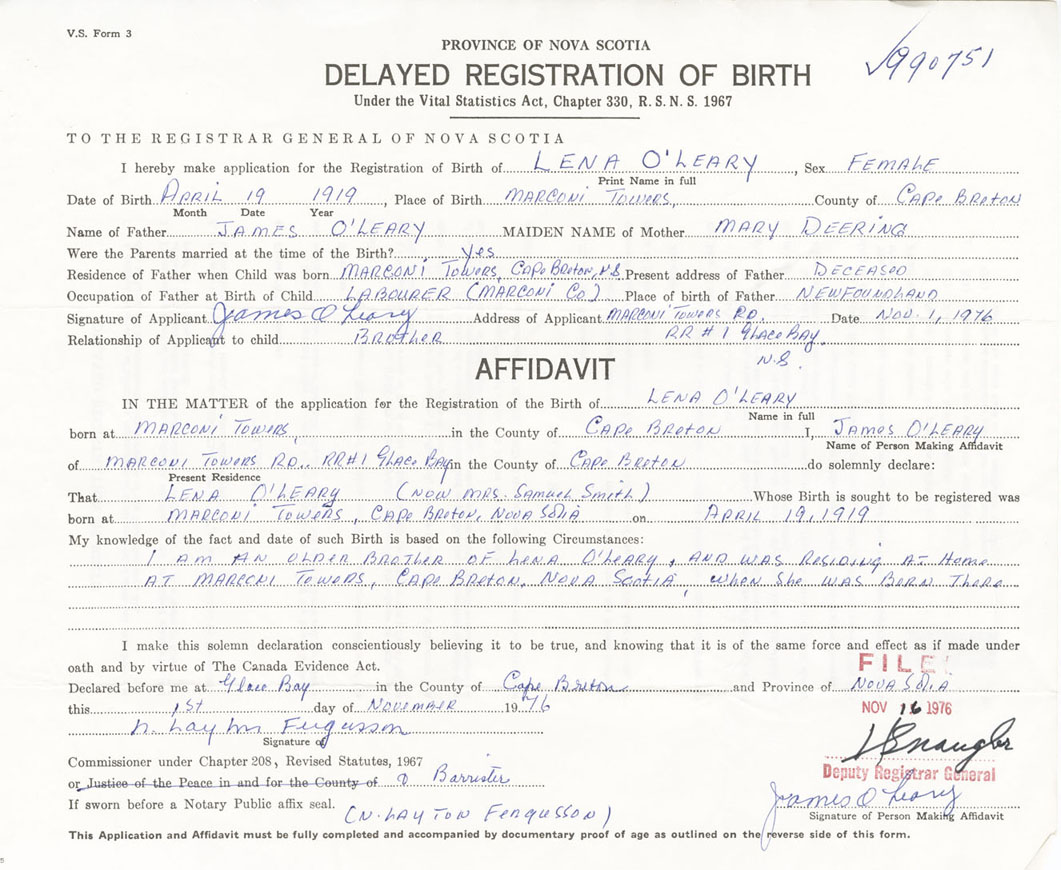 V.S. Form 3
PROVINCE OF NOVA SCOTIA
990751
DELAYED REGISTRATION OF BIRTH
Under the Vital Statistics Act, Chapter 330, R.S.N.S. 1967
TO THE REGISTRAR GENERAL OF NOVA SCOTIA
I hereby make application for the Registration of Birth of LENA O'LEARY, Sex FEMALE
Print Name in full
Date of Birth APRIL 19 1919, Place of Birth MARCONI TOWERS, County of CAPE BRETON
Month Date Year
Name of Father JAMES O'LEARY MAIDEN NAME of Mother MARY DEERING
Were the Parents married at the time of the Birth? Yes
Residence of Father when Child was born MARCONI TOWERS, CAPE BRETON, N.S. Present address of Father DECEASED
Occupation of Father at Birth of Child LABOURER (MARCONI CO) Place of birth of Father NEWFOUNDLAND
Signature of Applicant James O'Leary Address of Applicant MARCONI TOWERS RD. Date NOV. 1, 1976
Relationship of Applicant to child BROTHER RR #1 GLACE BAY
N.S.
AFFIDAVIT
IN THE MATTER of the application for the Registration of the Birth of LENA O'LEARY
Name in full
born at MARCONI TOWERS, in the County of CAPE BRETON I, JAMES O'LEARY
Name of Person Making Affidavit
of MARCONI TOWERS RD., RR#1 GLACE BAY in the County of CAPE BRETON do solemnly declare:
Present Residence
That LENA O'LEARY (NOW MRS. SAMUEL SMITH) Whose Birth is sought to be registered was
born at MARCONI TOWERS, CAPE BRETON, NOVA SCOTIA on APRIL 19, 1919
My knowledge of the fact and date of such Birth is based on the following Circumstances:
I AM AN OLDER BROTHER OF LENA O'LEARY, AND WAS RESIDING AT HOME
AT MARCONI TOWERS, CAPE BRETON, NOVA SCOTIA, WHEN SHE WAS BORN THERE
I make this solemn declaration conscientiously believing it to be true, and knowing that it is of the same force and effect as if made under
oath and by virtue of The Canada Evidence Act.
FILE
Declared before me at Glace Bay in the County of Cape Breton and Province of NOVA SCOTIA
this 1ST day of NOVEMBER 1976
NOV 16 1976
N. Layton Fergusson
Signature of
Commissioner under Chapter 208, Revised Statutes, 1967
Deputy Registrar General
or Justice of the Peace in and for the County of a Barrister
James O'Leary
If sworn before a Notary Public affix seal.
(N. LAYTON FERGUSSON)
Signature of Person Making Affidavit
This Application and Affidavit must be fully completed and accompanied by documentary proof of age as outlined on the reverse side of this form.